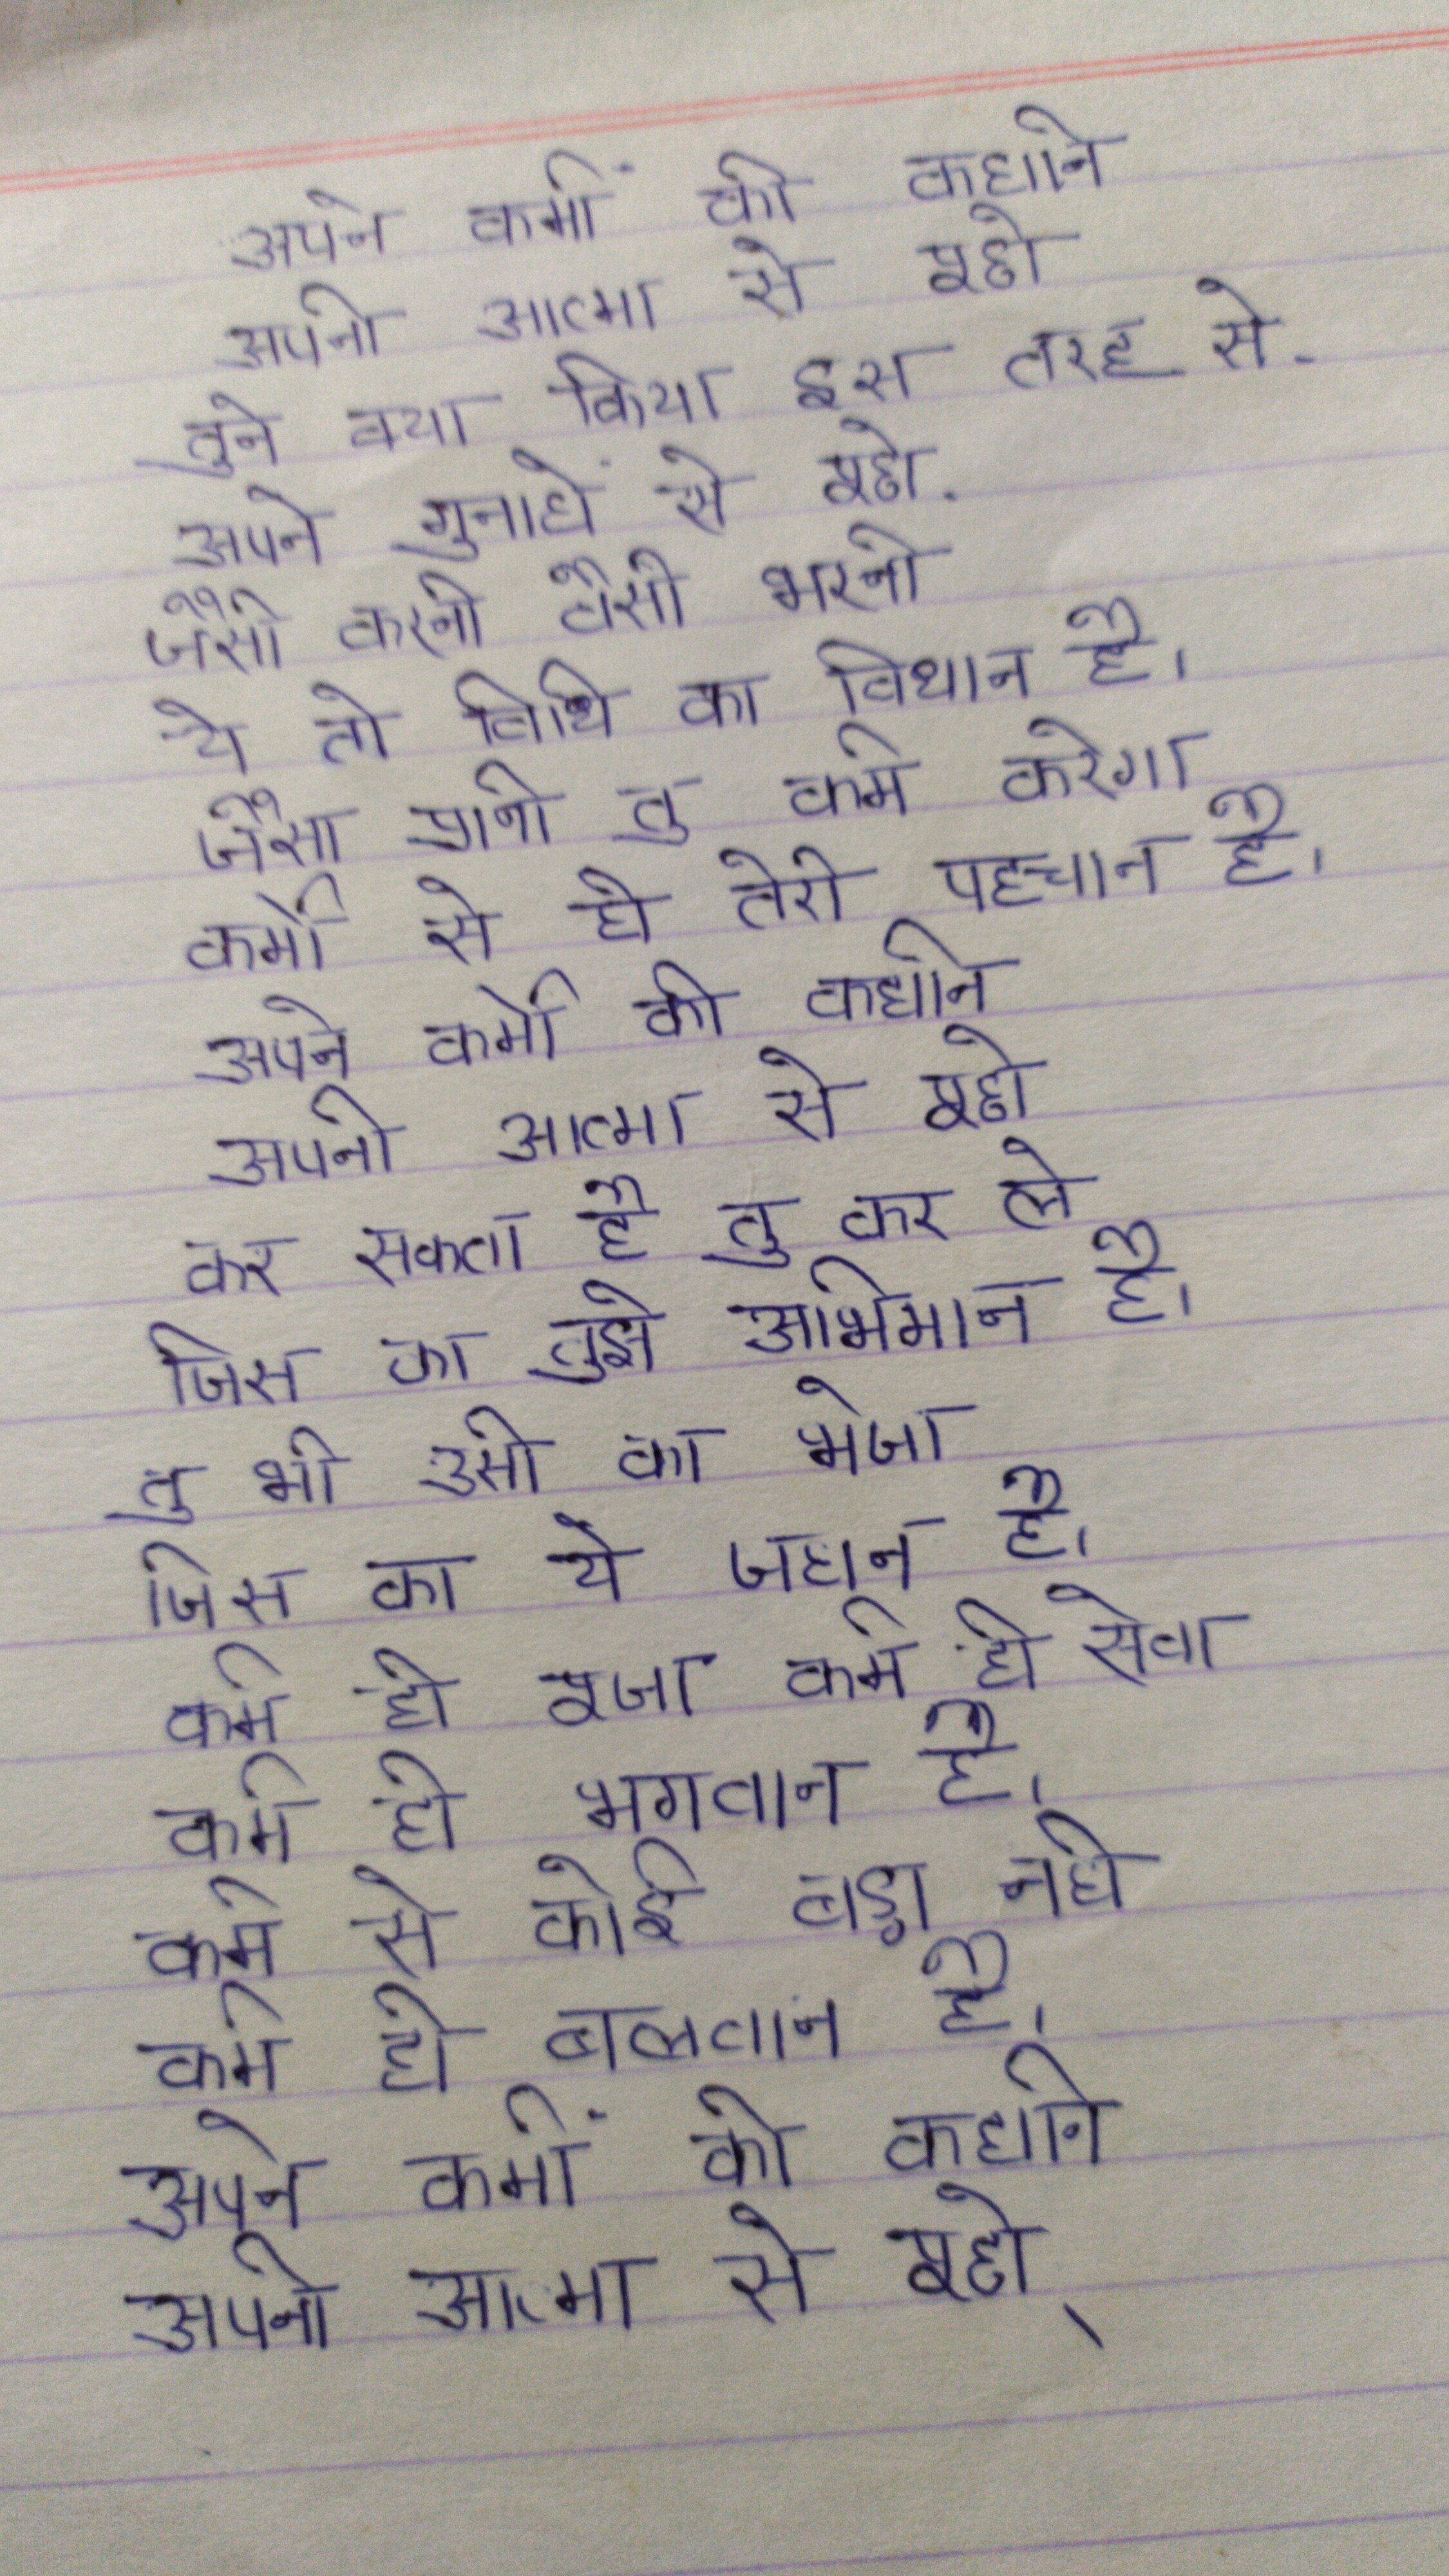 अपने कर्मों की कहानि
अपनी आत्मा से पूछो
तुने क्या किया इस तरह से.
अपने गुनाहों से पूछो.
जैसी करनी वैसी भरनी
ये तो विधि का विधान है।
जैसा प्रानी तु कर्म करेगा
कर्मो से ही तेरी पहचान है।
अपने कर्मो की कहानि
अपनी आत्मा से पूछो
कर सकता है तु कर ले
जिस का तुझे अभिमान है।
तु भी उसी का भेजा
जिस का ये जहान है।
कर्म ही पूजा कर्म ही सेवा
कर्म ही भगवान है।
कर्म से कोई बड़ा नही
कर्म ही बलवान है।
अपने कर्मों की कहानि
अपनी आत्मा से पूछो